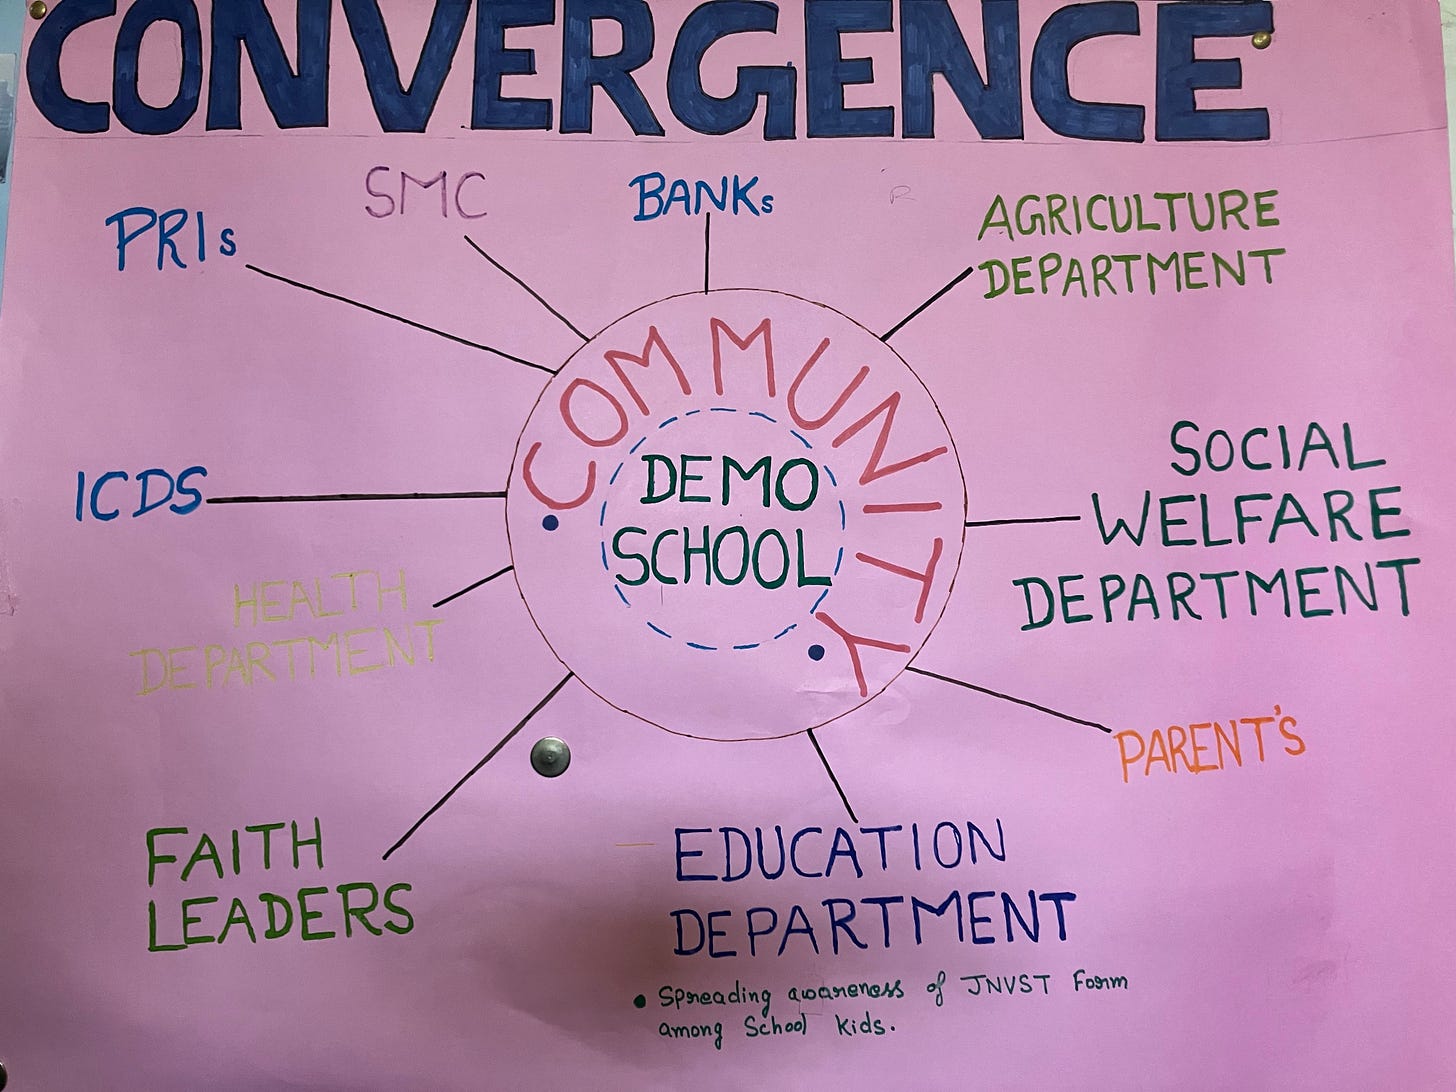 CONVERGENCE
SMC
BANKs
R
AGRICULTURE
DEPARTMENT
PRIs
COMMUNITY
DEMO
SCHOOL
SOCIAL
WELFARE
DEPARTMENT
ICDS
HEALTH
DEPARTMENT
PARENT'S
FAITH
LEADERS
EDUCATION
DEPARTMENT
• Spreading awareness of JNVST Form
among School kids.